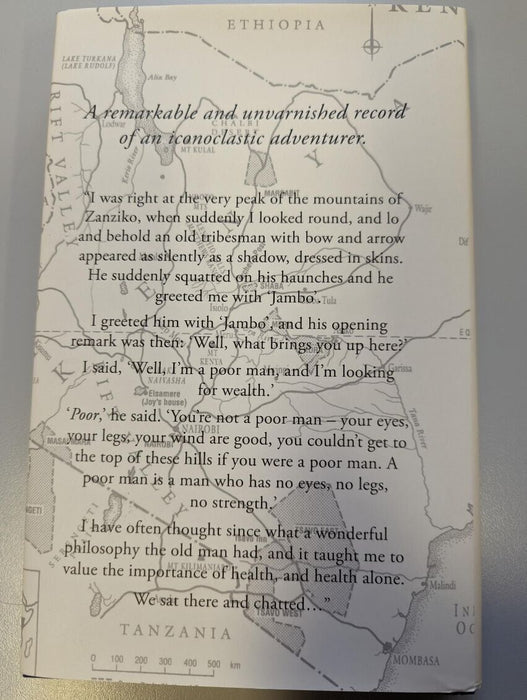 ETHIOPIA
KEN
LAKE TURKANA
(LAKE RUDOLF)
Alia Bay
A remarkable and unvarnished record
of an iconoclastic adventurer.
Lodwar
CHALBI
DESERT
MT KULAL
Kerio River
RIFT VALLEY
"I was right at the very peak of the mountains of
MARSABIT
Zanziko, when suddenly I looked round, and lo
Wajir
and behold an old tribesman with bow and arrow
Dif
appeared as silently as a shadow, dressed in skins.
He suddenly squatted on his haunches and he
SHABA
greeted me with 'Jambo'.
Tula
Isiolo
I greeted him with 'Jambo', and his opening
EQ
remark was then: 'Well, what brings you up here?'
MT
KENYA
Garissa
I said, 'Well, I'm a poor man, and I'm looking
for wealth.'
NAIVASHA
Elsamere
(Joy's house)
'Poor,' he said. 'You're not a poor man – your eyes,
NAIROBI
Tana River
your legs, your wind are good, you couldn't get to
MASAI
NAIROBI
the top of these hills if you were a poor man. A
poor man is a man who has no eyes, no legs,
no strength.'
NGETI
TSAVO EAST
I have often thought since what a wonderful
philosophy the old man had, and it taught me to
MT KILIMANJARO
value the importance of health, and health alone.
Malindi
We sat there and chatted…"
TSAVO WEST
IN
OC
TANZANIA
MOMBASA
0 100 200 300 400 500 km